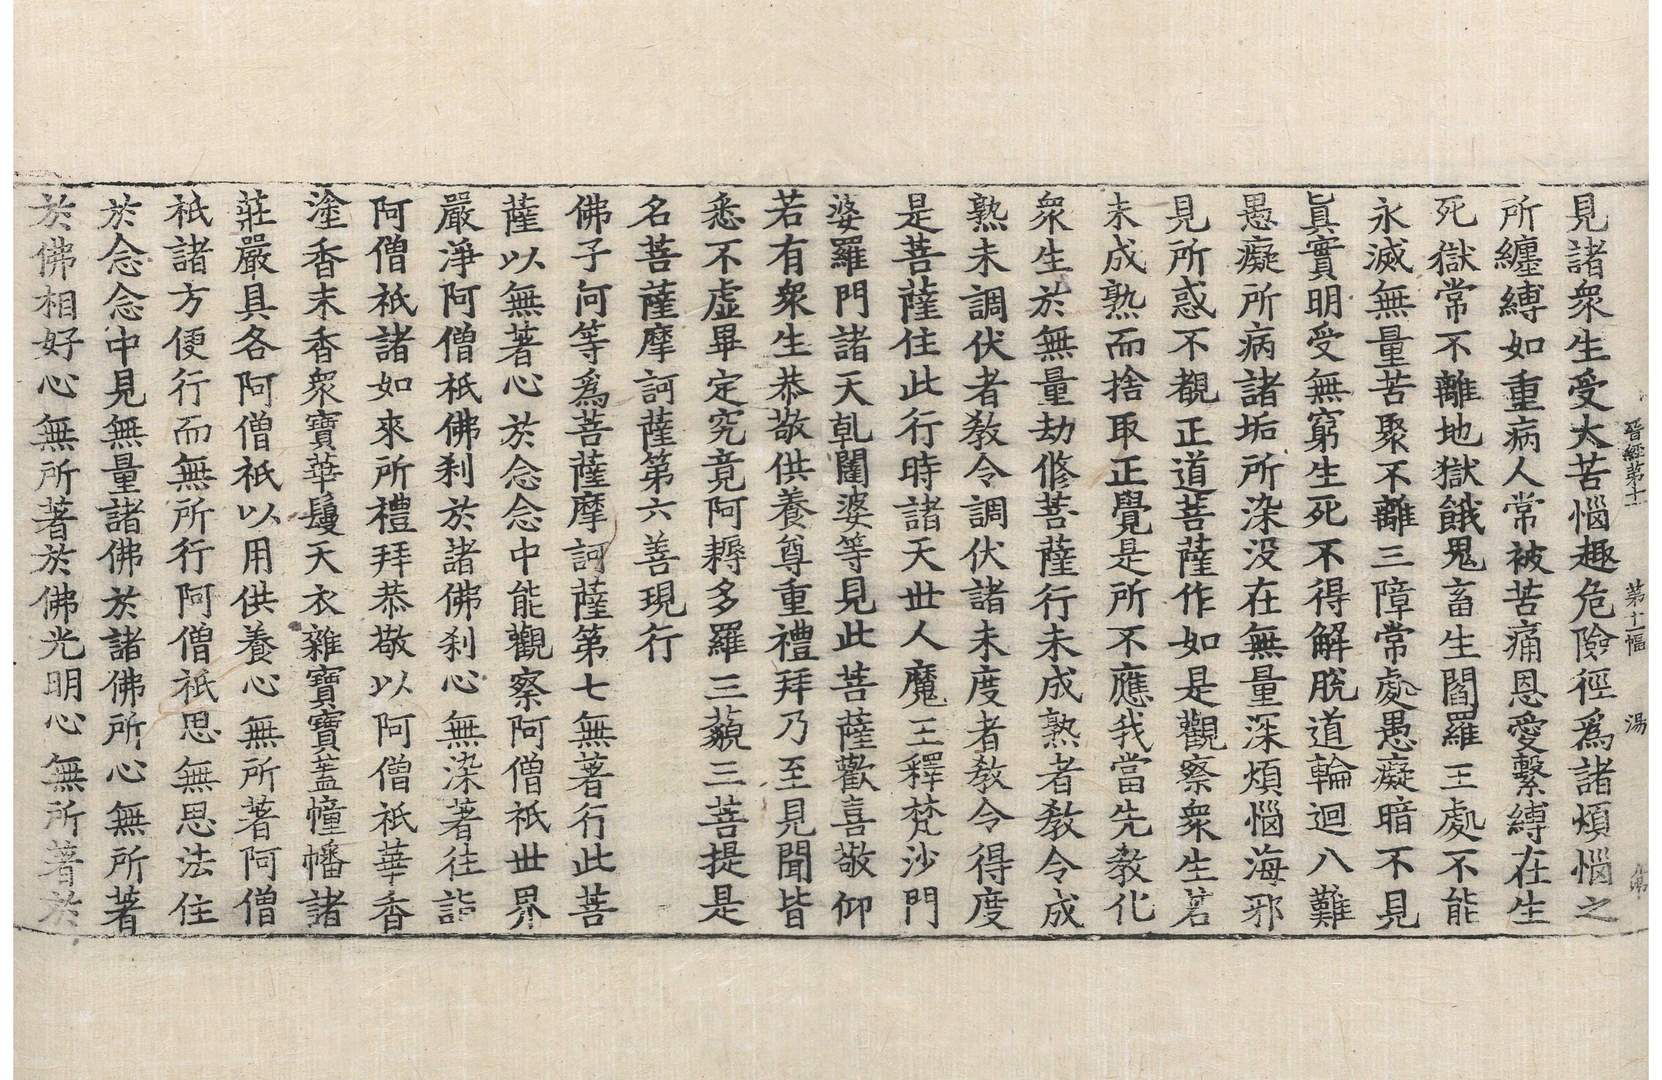 晉經第十一 第十一幅 湯
見諸衆生受大苦惱趣危險徑爲諸煩惱之
所纏縛如重病人常被苦痛恩愛繫縛在生
死獄常不離地獄餓鬼畜生閻羅王處不能
永滅無量苦聚不離三障常處愚癡暗不見
眞實明受無窮生死不得解脫道輪迴八難
愚癡所病諸垢所染没在無量深煩惱海邪
見所惑不覩正道菩薩作如是觀察衆生若
未成熟而捨取正覺是所不應我當先教化
衆生於無量劫修菩薩行未成熟者教令成
熟未調伏者教令調伏諸未度者教令得度
是菩薩住此行時諸天世人魔王釋梵沙門
婆羅門諸天乹闥婆等見此菩薩歡喜敬仰
若有衆生恭敬供養尊重禮拜乃至見聞皆
悉不虛畢定究竟阿耨多羅三藐三菩提是
名菩薩摩訶薩第六善現行
佛子何等爲菩薩摩訶薩第七無著行此菩
薩以無著心於念念中能觀察阿僧祇世界
嚴淨阿僧祇佛刹於諸佛刹心無染著往詣
阿僧祇諸如來所禮拜恭敬以阿僧祇華香
塗香末香衆寶華鬘天衣雜寶寶蓋幢幡諸
莊嚴具各阿僧祇以用供養心無所著阿僧
祇諸方便行而無所行阿僧祇思無思法住
於念念中見無量諸佛於諸佛所心無所著
於佛相好心無所著於佛光明心無所著於